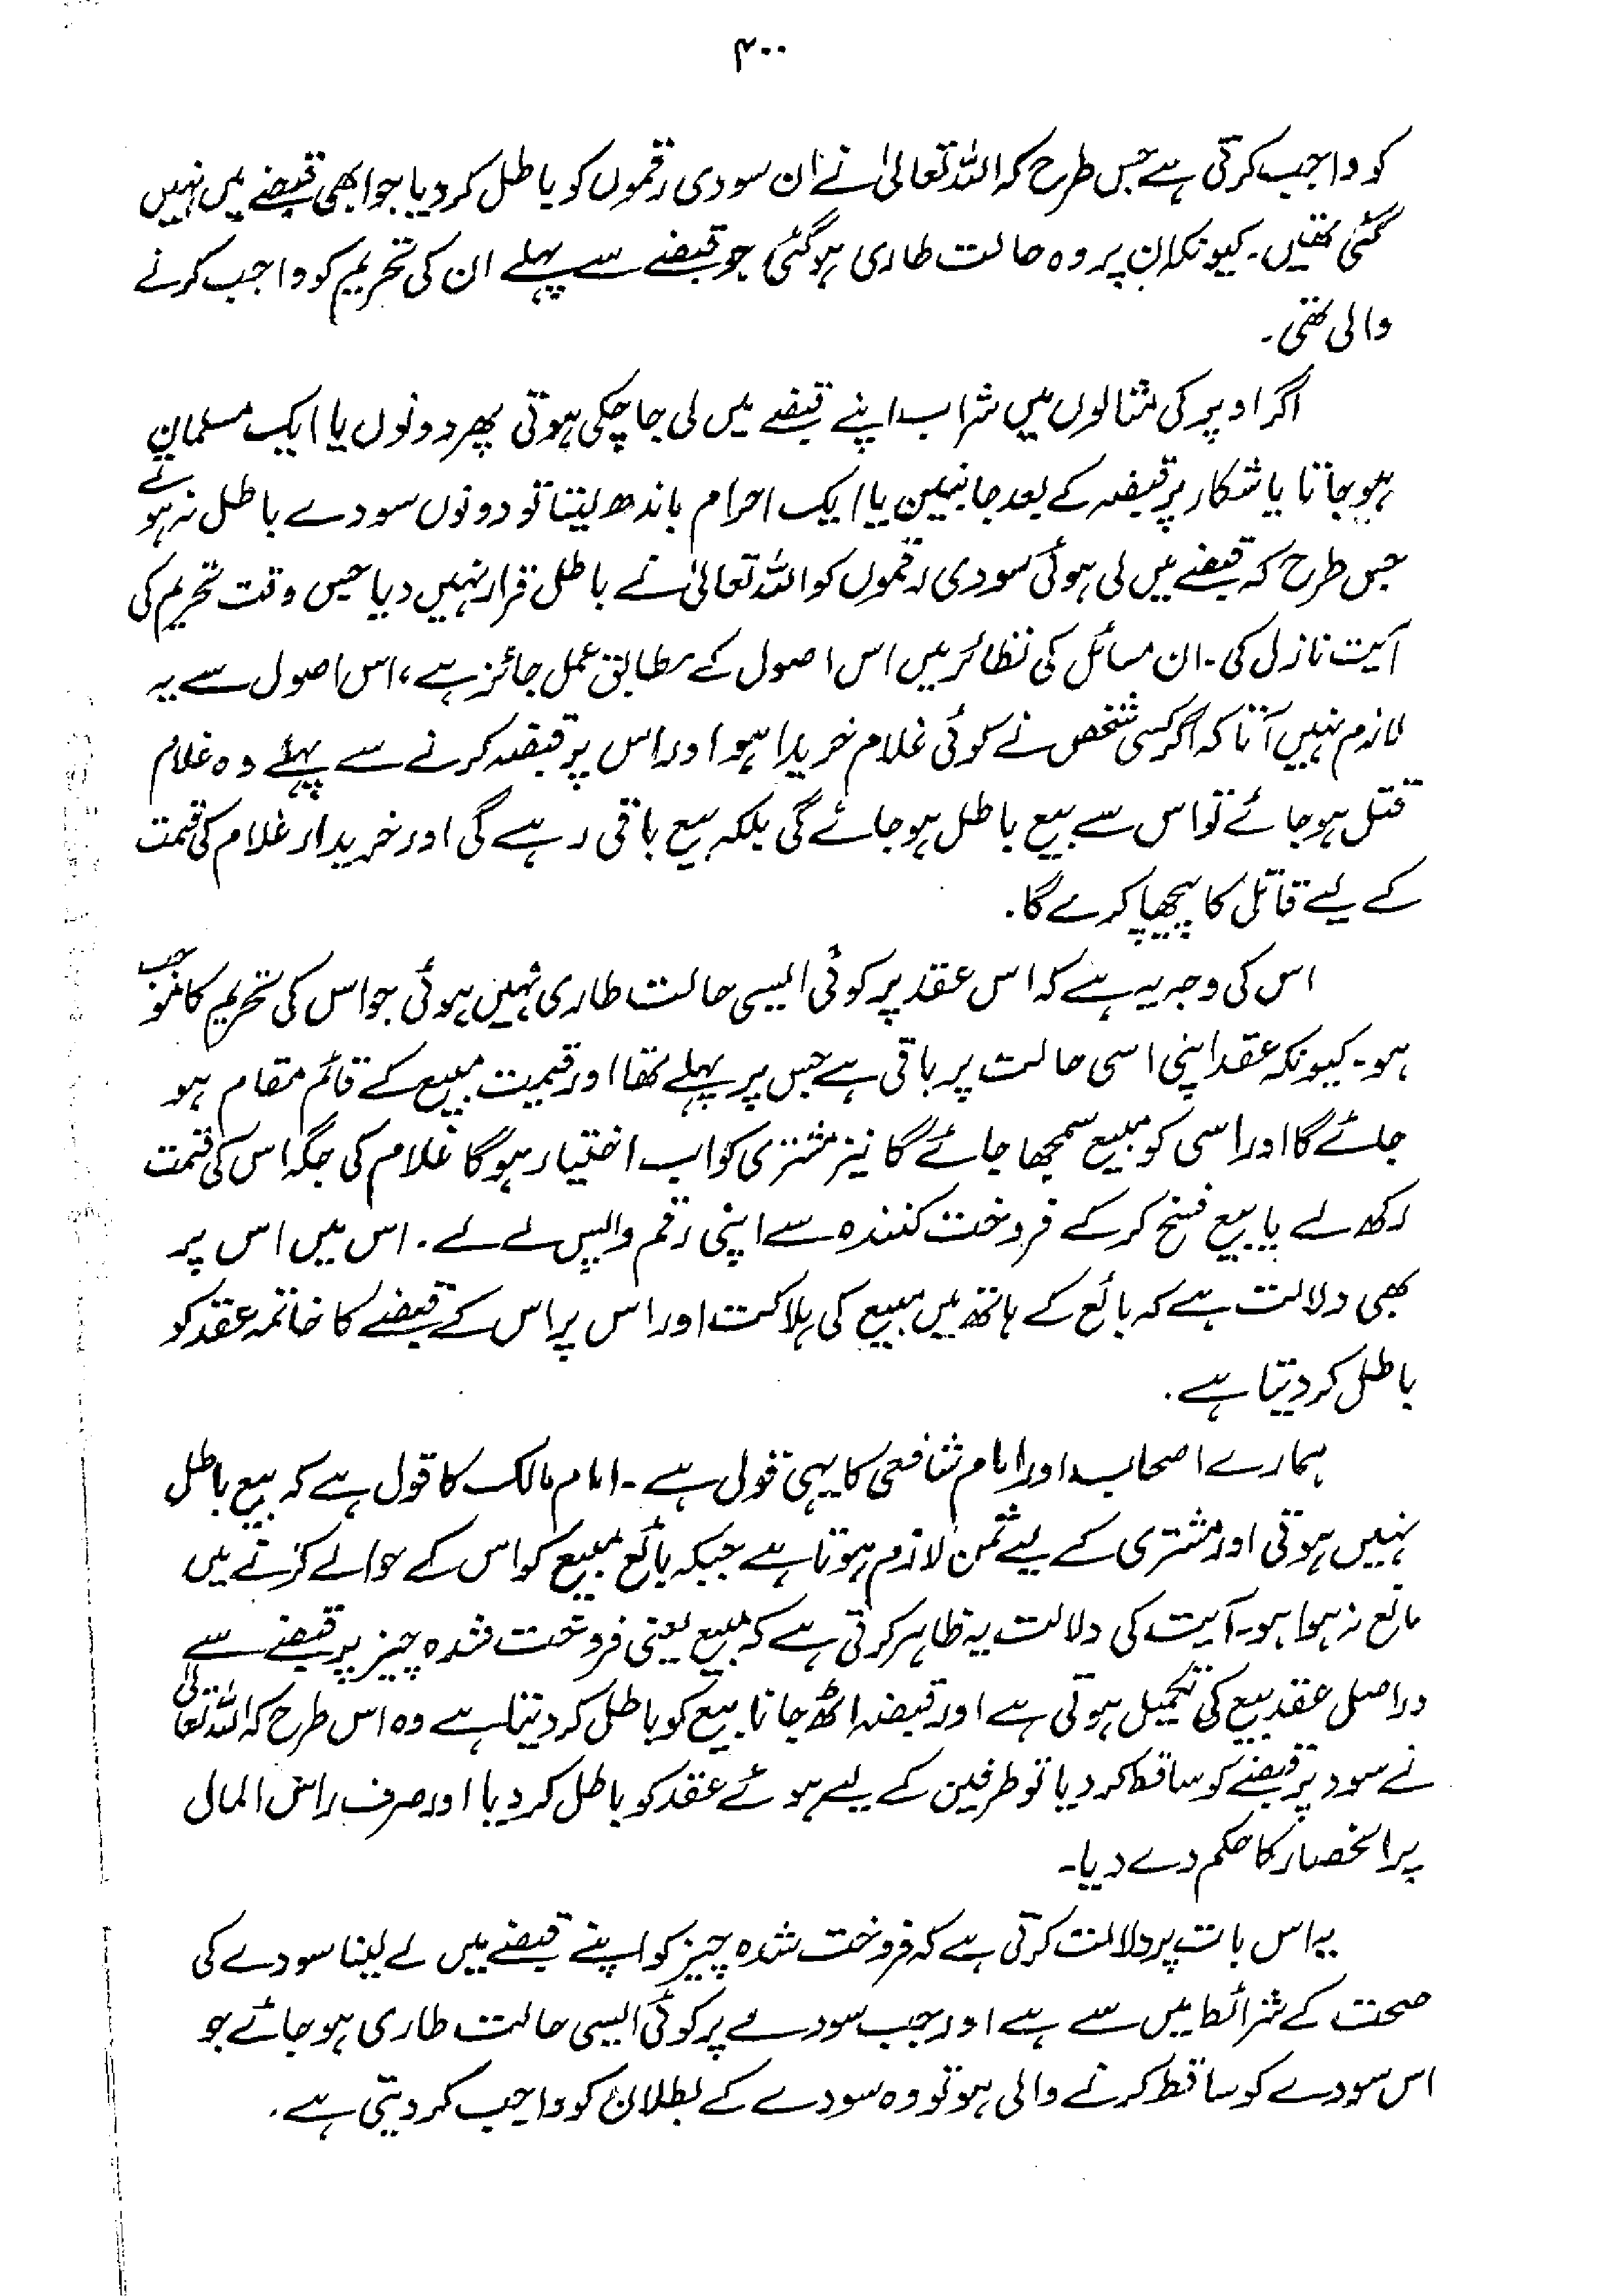 ۴۰۰
کو واجب کرتی ہے جس طرح کہ اللہ تعالیٰ نے ان سودی رقموں کو باطل کر دیا جو ابھی قبضے میں نہیں
گئی تھیں۔ کیونکہ ان پر وہ حالت طاری ہو گئی جو قبضے سے پہلے ان کی تحریم کو واجب کرنے
والی تھی۔
اگر اوپر کی مثالوں میں شراب اپنے قبضے میں لی جا چکی ہوتی پھر دونوں یا ایک مسلمان
ہو جاتا یا شکار پر قبضہ کے بعد جانبین یا ایک احرام باندھ لیتا تو دونوں سودے باطل نہ ہوتے
جس طرح کہ قبضے میں لی ہوئی سودی رقموں کو اللہ تعالیٰ نے باطل قرار نہیں دیا جس وقت تحریم کی
آیت نازل کی۔ ان مسائل کی نظائر میں اس اصول کے مطابق عمل جائز ہے، اس اصول سے یہ
لازم نہیں آتا کہ اگر کسی شخص نے کوئی غلام خریدا ہو اور اس پر قبضہ کرنے سے پہلے وہ غلام
قتل ہو جائے تو اس سے بیع باطل ہو جائے گی بلکہ بیع باقی رہے گی اور خریدار غلام کی قیمت
کے لیے قاتل کا پیچھا کرے گا۔
اس کی وجہ یہ ہے کہ اس عقد پر کوئی ایسی حالت طاری نہیں ہوئی جو اس کی تحریم کا موجب
ہو۔ کیونکہ عقد اپنی اسی حالت پر باقی ہے جس پر پہلے تھا اور قیمت مبیع کے قائم مقام ہو
جائے گا اور اسی کو مبیع سمجھا جائے گا نیز مشتری کو اب اختیار ہو گا غلام کی جگہ اس کی قیمت
رکھ لے یا بیع فسخ کر کے فروخت کنندہ سے اپنی رقم واپس لے لے۔ اس میں اس پر
بھی دلالت ہے کہ بائع کے ہاتھ میں مبیع کی ہلاکت اور اس پر اس کے قبضے کا خاتمہ عقد کو
باطل کر دیتا ہے۔
ہمارے اصحاب اور امام شافعی کا یہی قول ہے۔ امام مالک کا قول ہے کہ بیع باطل
نہیں ہوتی اور مشتری کے لیے ثمن لازم ہوتا ہے جبکہ بائع مبیع کو اس کے حوالے کرنے میں
مانع نہ ہوا ہو۔ آیت کی دلالت یہ ظاہر کرتی ہے کہ مبیع یعنی فروخت شدہ چیز پر قبضے سے
دراصل عقد بیع کی تکمیل ہوتی ہے اور قبضہ اٹھ جانا بیع کو باطل کر دیتا ہے وہ اس طرح کہ اللہ تعالیٰ
نے سود پر قبضے کو ساقط کر دیا تو طرفین کے لیے ہوئے عقد کو باطل کر دیا اور صرف راس المال
پر انحصار کا حکم دے دیا۔
یہ اس بات پر دلالت کرتی ہے کہ فروخت شدہ چیز کو اپنے قبضے میں لے لینا سودے کی
صحت کے شرائط میں سے ہے اور جب سودے پر کوئی ایسی حالت طاری ہو جائے جو
اس سودے کو ساقط کرنے والی ہو تو وہ سودے کے بطلان کو واجب کر دیتی ہے۔